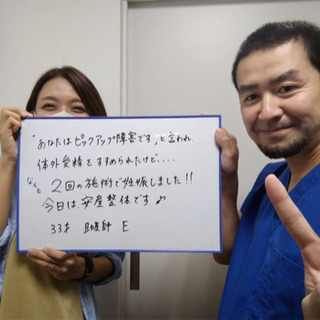 「あなたはピックアップ障害です」と言われ
体外受精をすすめられたけど....
なんと2回の施術で妊娠しました!!
今日は、安産整体です♪
33才 助産師 E